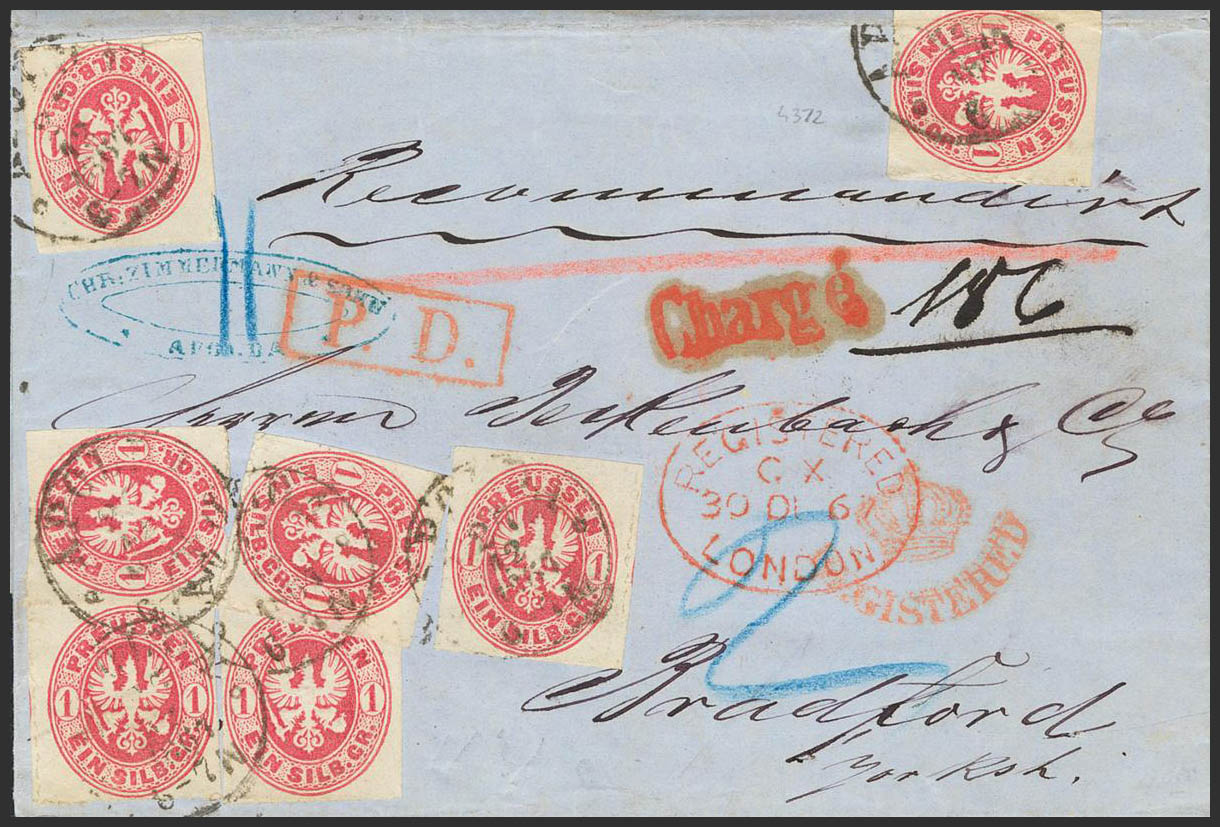 4372
Recommandirt
CHR. ZIMMERMANN & SOHN
APOLDA
P. D.
Chargé
186
Herren Derkenbach & Co
REGISTERED
C X
30 DE 6
LONDON
REGISTERED
Bradford
Yorksh.
PREUSSEN
1 1
EIN SILB.GR.
PREUSSEN
1 1
EIN SILB.GR.
PREUSSEN
1 1
EIN SILB.GR.
PREUSSEN
1 1
EIN SILB.GR.
PREUSSEN
1 1
EIN SILB.GR.
PREUSSEN
1 1
EIN SILB.GR.
PREUSSEN
1 1
EIN SILB.GR.